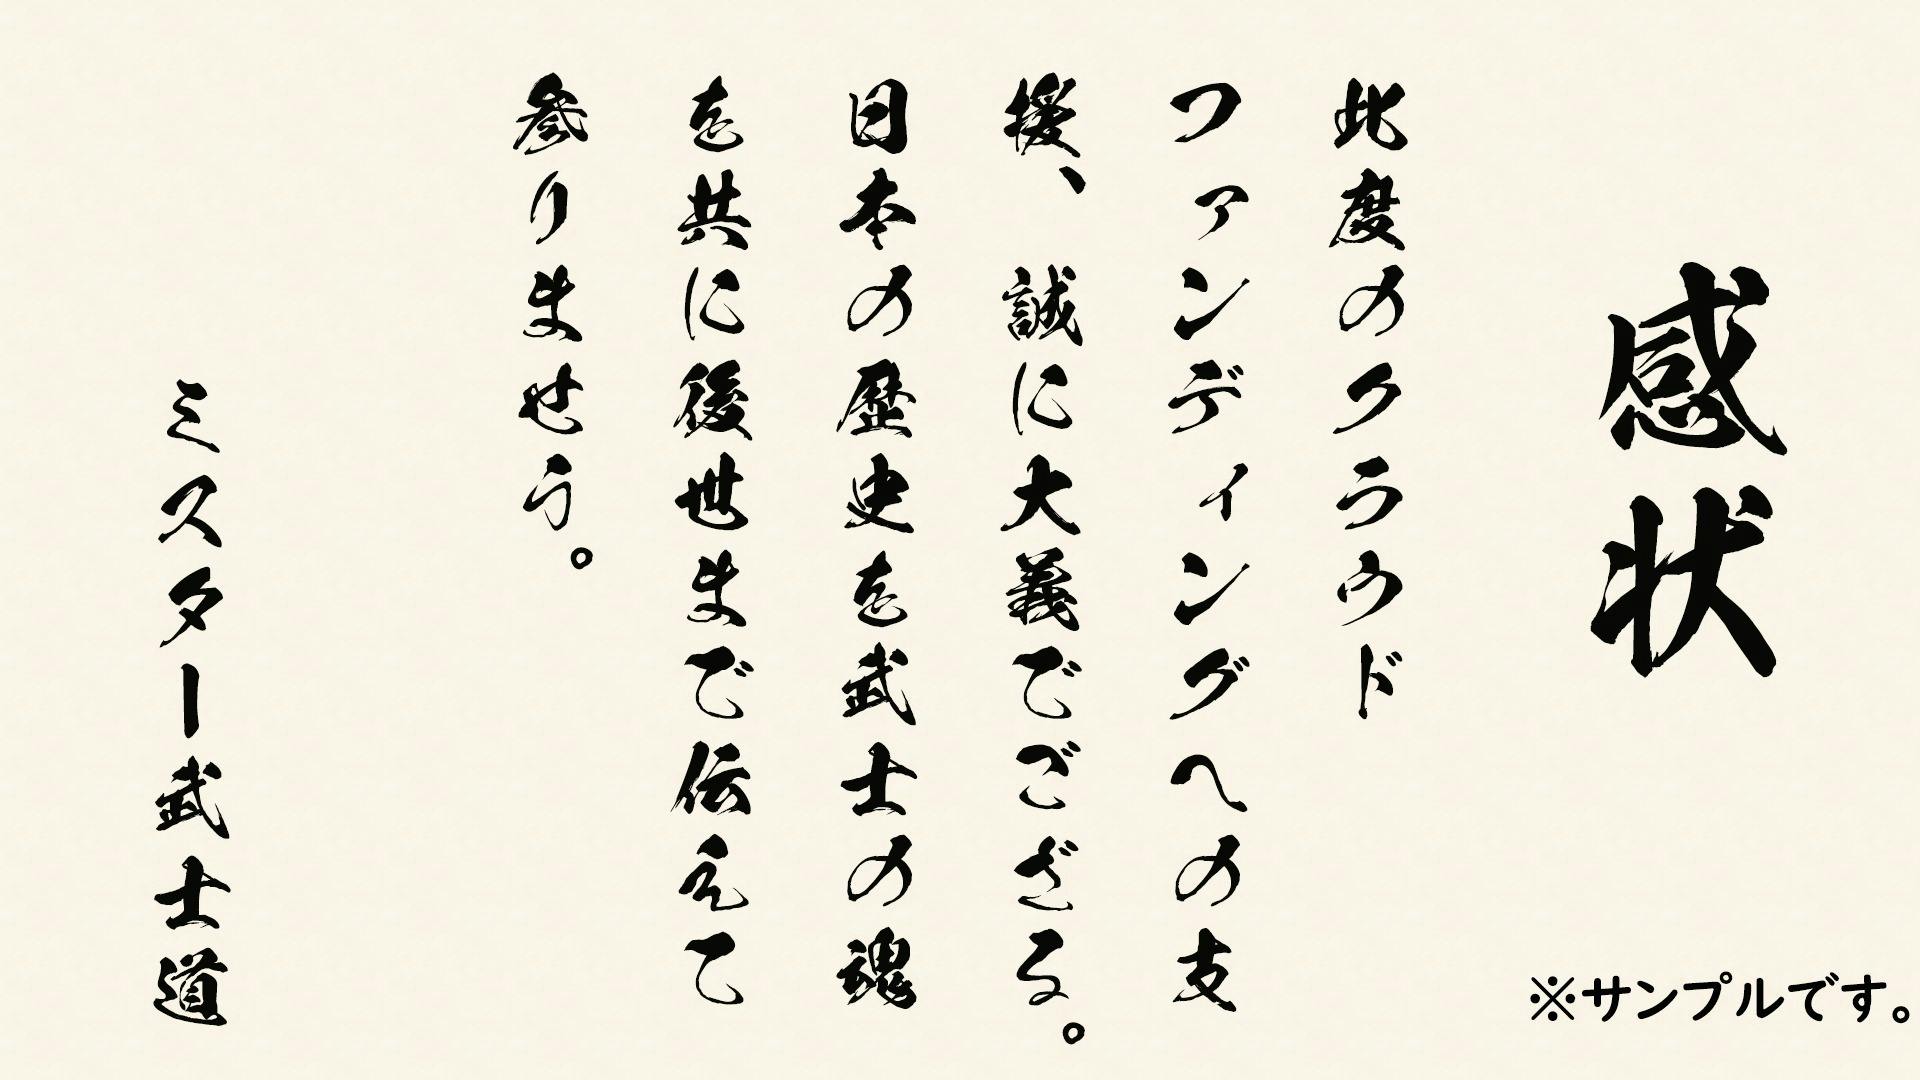 感状
此度のクラウド
ファンディングへの支
援、誠に大義でござる。
日本の歴史を武士の魂
を共に後世まで伝えて
参りませう。
ミスター武士道
※サンプルです。